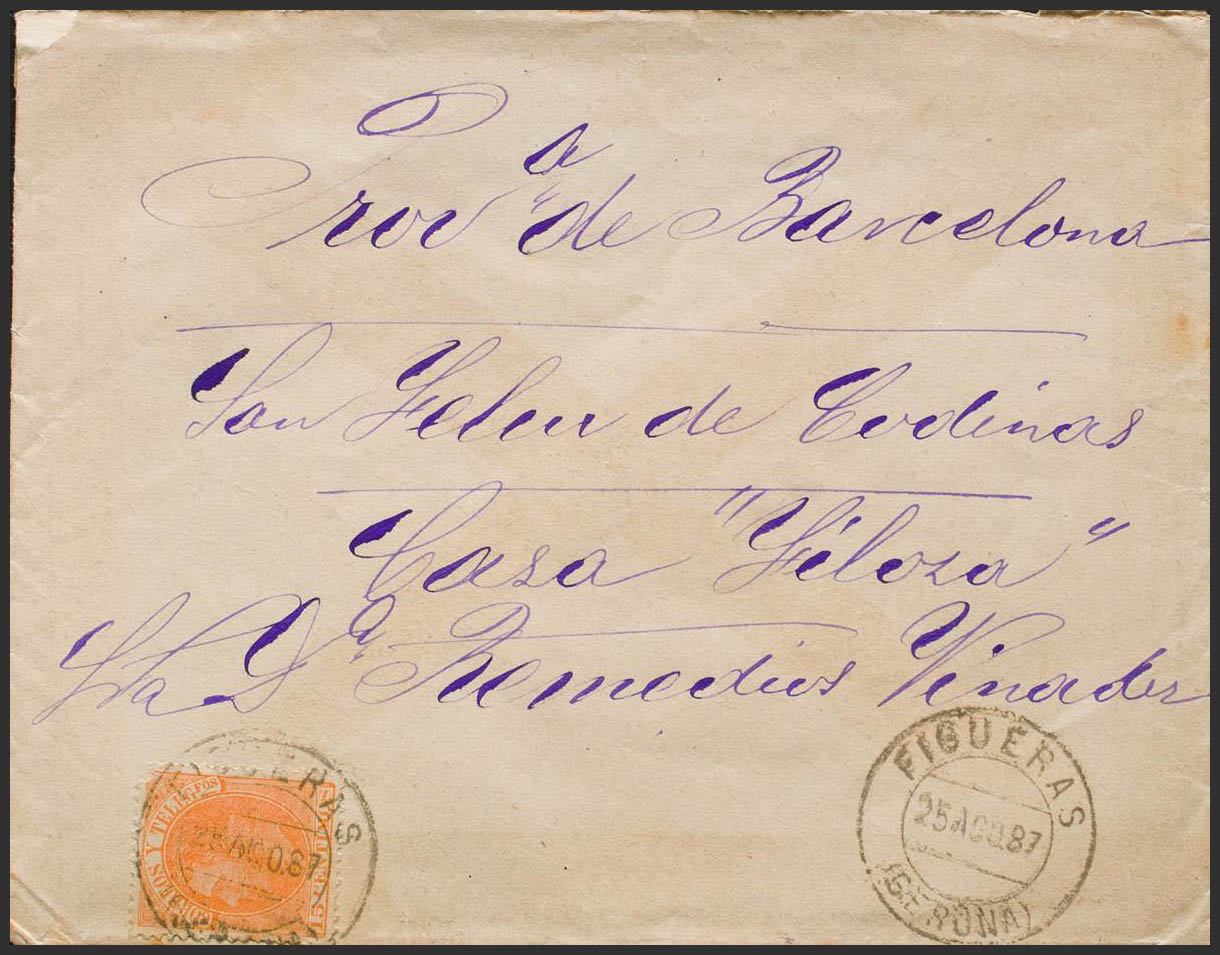 Provª de Barcelona
San Feliu de Codinas
Casa "Féloza"
Sra Dª Remedios Vinader
FIGUERAS
25 AGO.87
(GERONA)
FIGUERAS
25 AGO.87
CORREOS Y TELEG.FOS